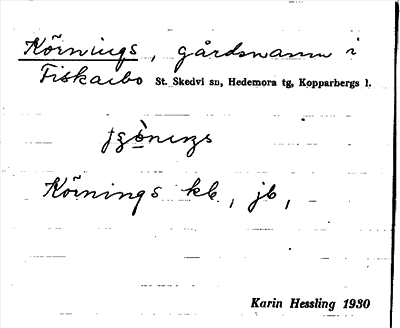 Körnings, gårdsnamn i
Fiskarbo St. Skedvi sn, Hedemora tg, Kopparbergs l.
Körnings kb, jb,
Karin Hessling 1930